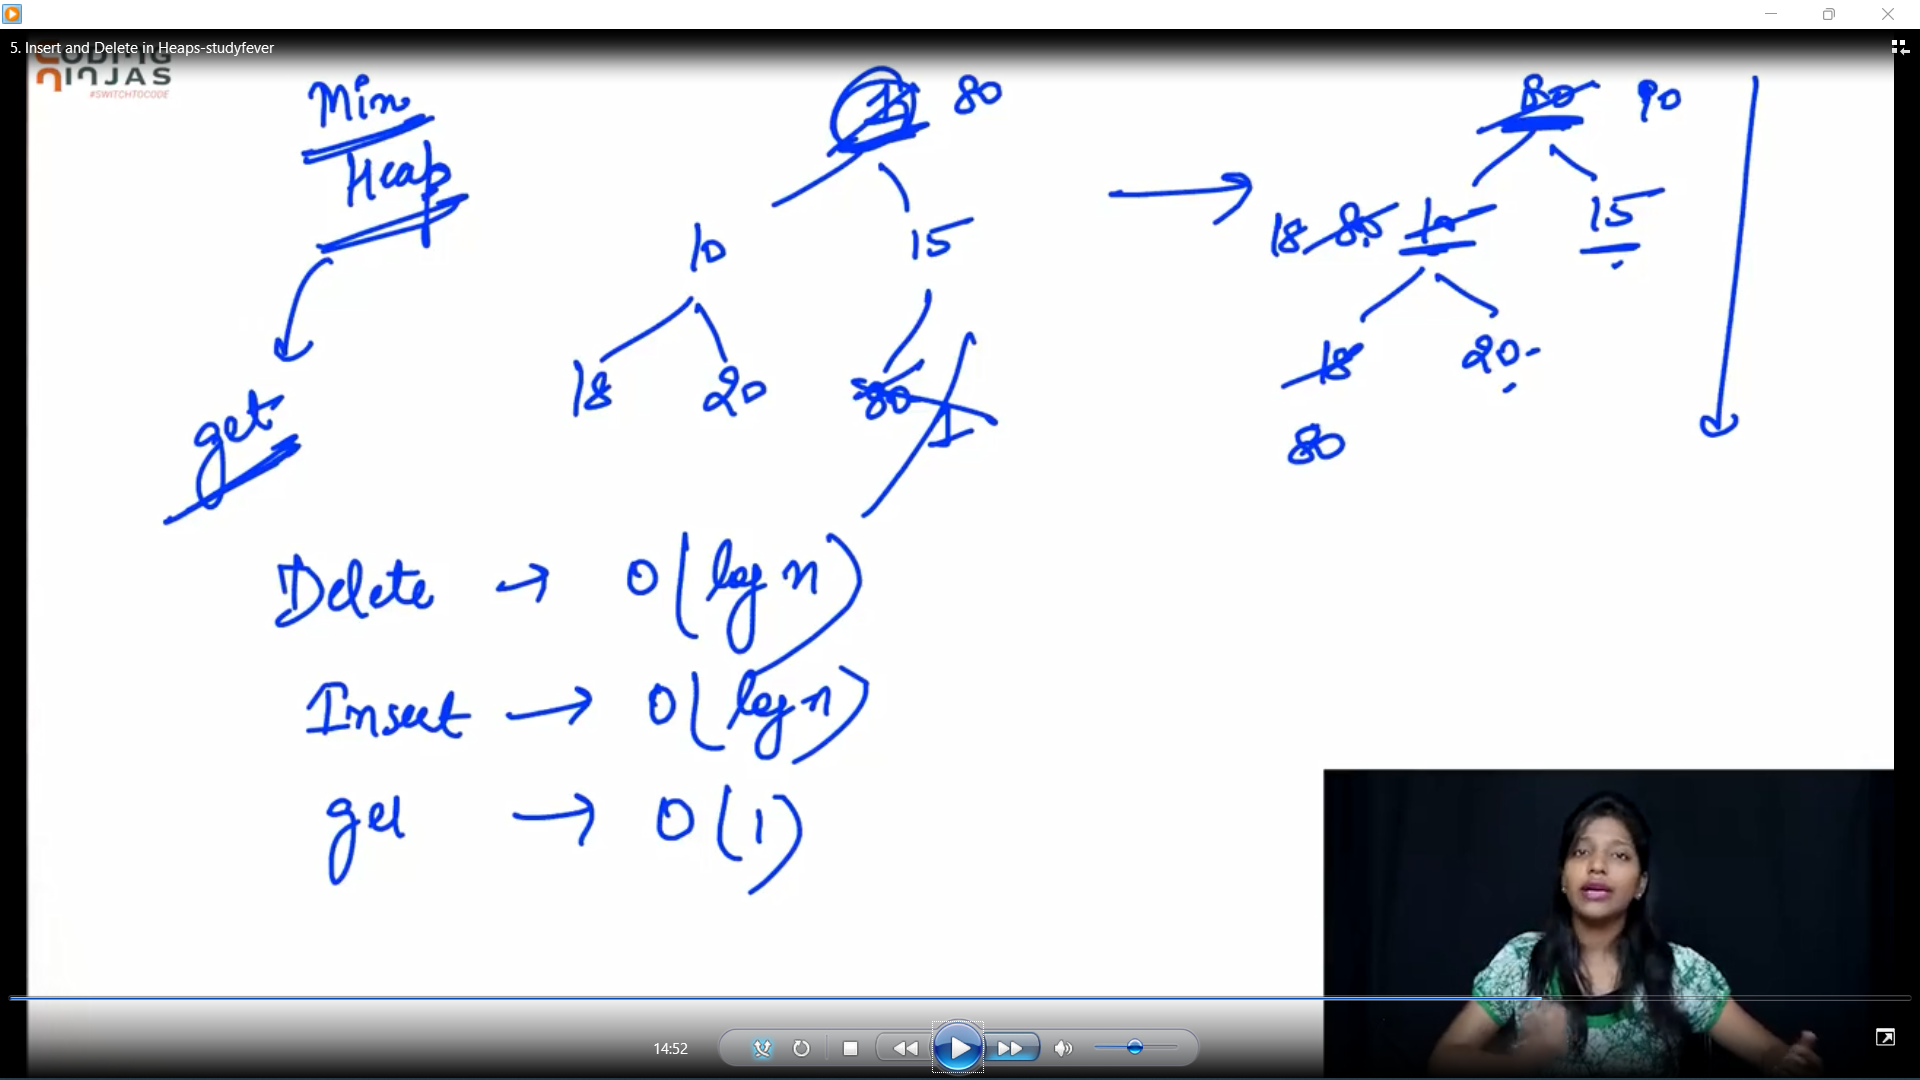 5. Insert and Delete in Heaps-studyfever
CODING
NINJAS
#SWITCHTOCODE
Min
Heap
get
80
10 15
18 20 80
1
80 10
18 80 10 15
18 20
80
Delete → O(log n)
Insert → O(log n)
get → O(1)
14:52